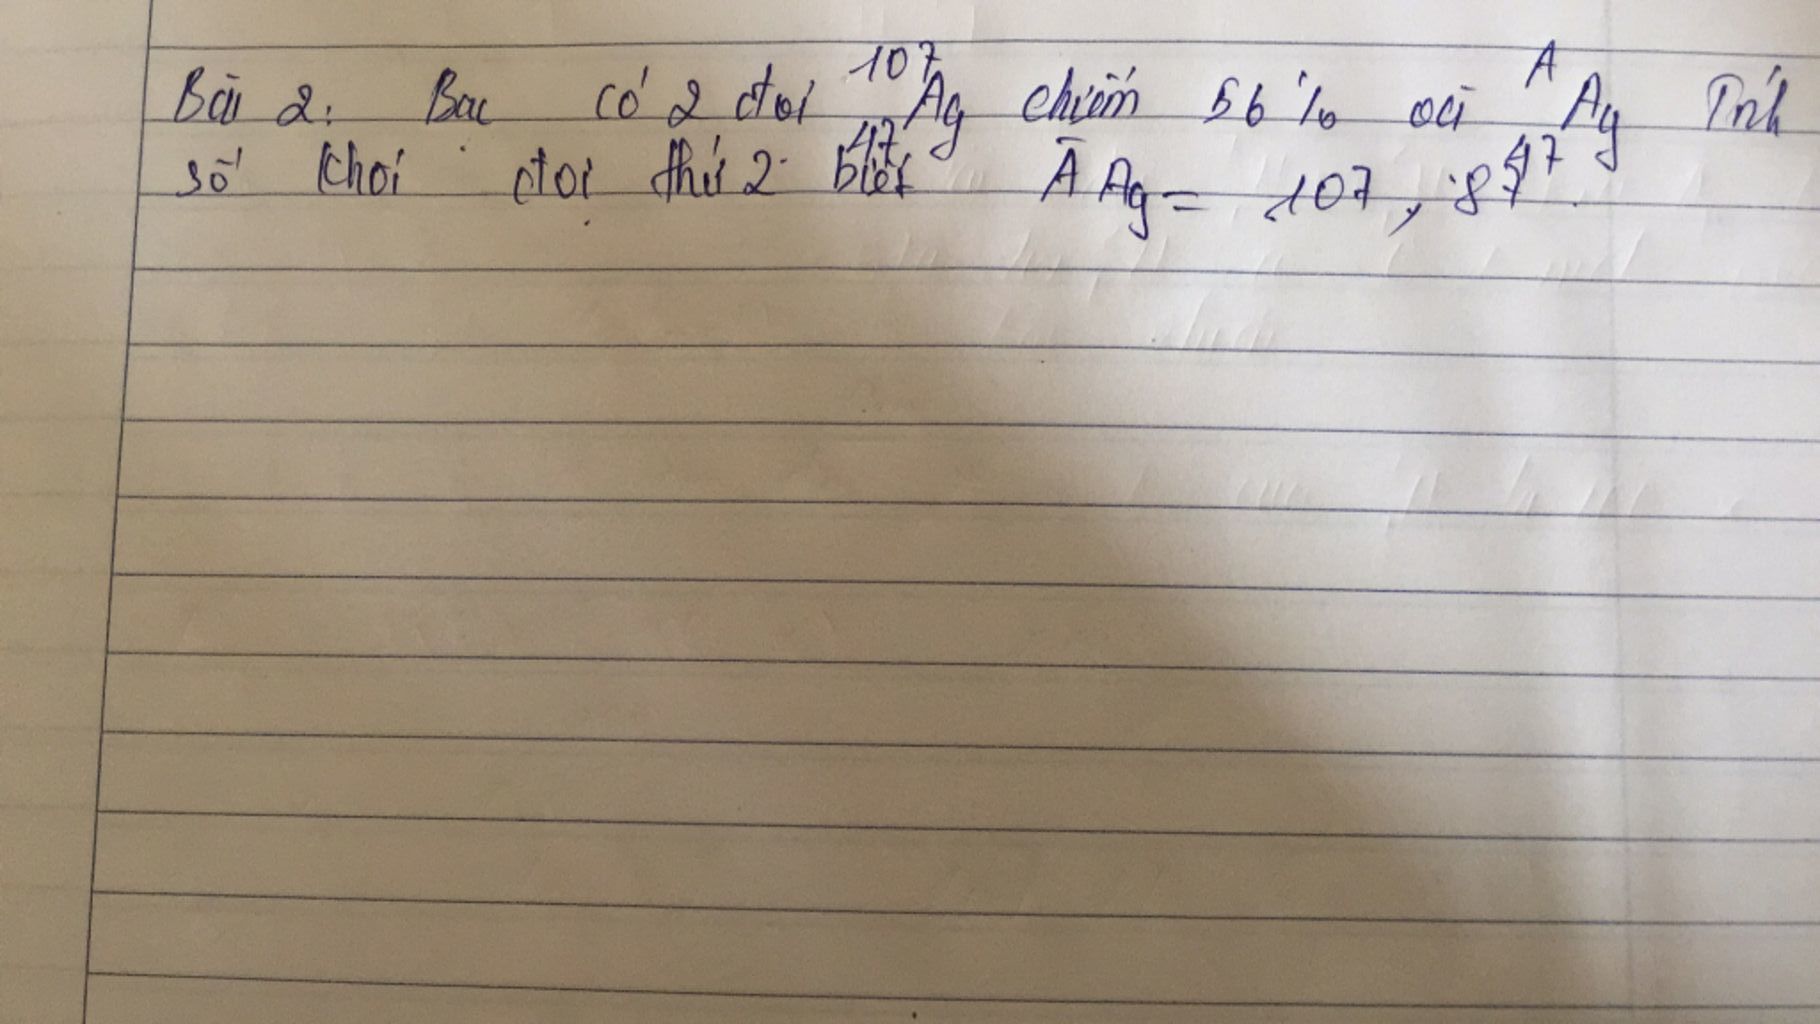 Bài 2: Bac có 2 đvi ¹⁰⁷₄₇Ag chiếm 56% và ᴬ₄₇Ag Tính
số khối đvi thứ 2 biết Ā Ag = 107,87.